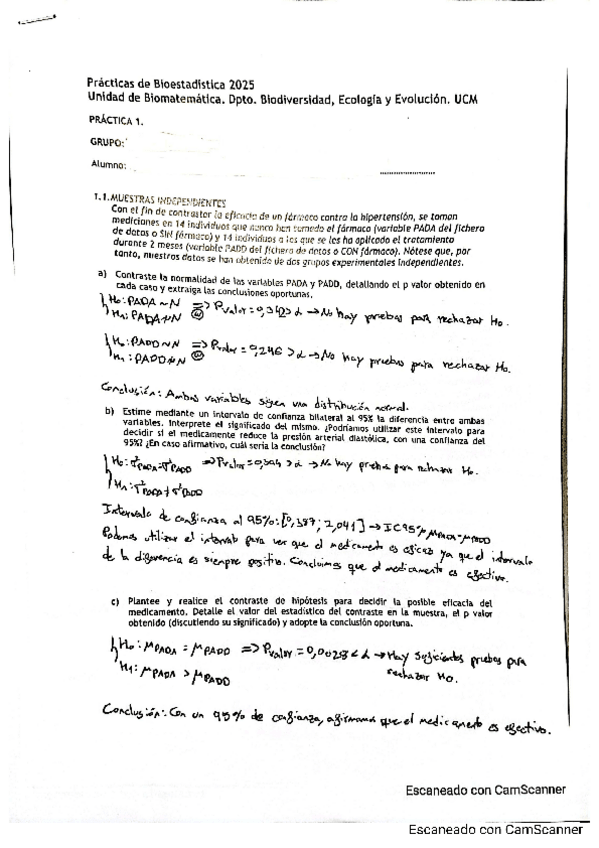 Prácticas de Bioestadística 2025
Unidad de Biomatemática. Dpto. Biodiversidad, Ecología y Evolución. UCM
PRÁCTICA 1.
GRUPO:
Alumno:
1.1. MUESTRAS INDEPENDIENTES
Con el fin de contrastar la eficacia de un fármaco contra la hipertensión, se toman
mediciones en 14 individuos que nunca han tomado el fármaco (variable PADA del fichero
de datos o SIN fármaco) y 14 individuos a los que se les ha aplicado el tratamiento
durante 2 meses (variable PADD del fichero de datos o CON fármaco). Nótese que, por
tanto, nuestros datos se han obtenido de dos grupos experimentales independientes.
a) Contraste la normalidad de las variables PADA y PADD, detallando el p valor obtenido en
cada caso y extraiga las conclusiones oportunas.
H₀: PADA ~ N => Pvalor = 0,342 > α → No hay pruebas para rechazar H₀.
H₁: PADA ≁ N
H₀: PADD ~ N => Pvalor = 0,246 > α → No hay pruebas para rechazar H₀.
H₁: PADD ≁ N
Conclusión: Ambas variables siguen una distribución normal.
b) Estime mediante un intervalo de confianza bilateral al 95% la diferencia entre ambas
variables. Interprete el significado del mismo. ¿Podríamos utilizar este intervalo para
decidir si el medicamento reduce la presión arterial diastólica, con una confianza del
95%? ¿En caso afirmativo, cuál sería la conclusión?
H₀: σ²PADA = σ²PADD => Pvalor = > α → No hay pruebas para rechazar H₀.
H₁: σ²PADA ≠ σ²PADD
Intervalo de confianza al 95%: [0,387; 2,041] → IC95% μPADA-μPADD
Podemos utilizar el intervalo para ver que el medicamento es eficaz ya que el intervalo
de la diferencia es siempre positivo. Concluimos que el medicamento es efectivo.
c) Plantee y realice el contraste de hipótesis para decidir la posible eficacia del
medicamento. Detalle el valor del estadístico del contraste en la muestra, el p valor
obtenido (discutiendo su significado) y adopte la conclusión oportuna.
H₀: μPADA = μPADD => Pvalor = 0,0028 < α → Hay suficientes pruebas para
rechazar H₀.
H₁: μPADA > μPADD
Conclusión: Con un 95% de confianza, afirmamos que el medicamento es efectivo.
Escaneado con CamScanner
Escaneado con CamScanner